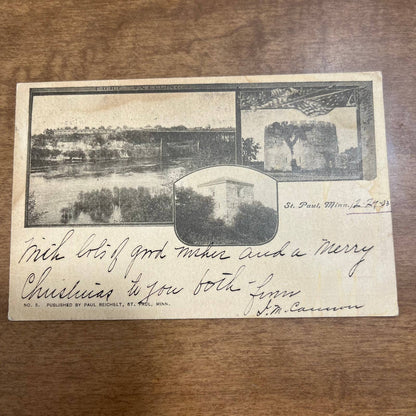 St. Paul, Minn.
With lots of good wishes and a Merry
Christmas to you both from
J.M. Cannon
NO. 5. PUBLISHED BY PAUL REICHELT, ST. PAUL, MINN.